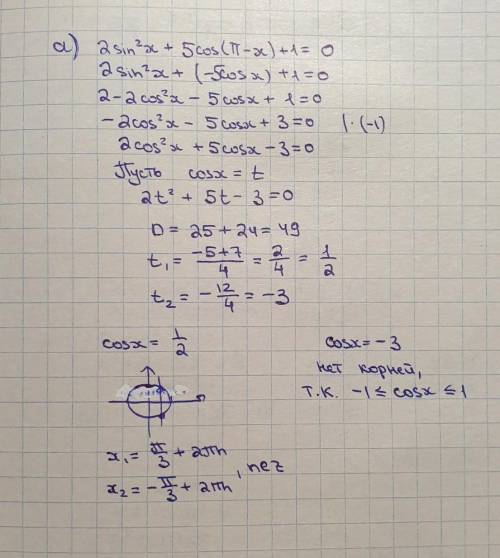 а) 2sin²x + 5cos(π-x)+1= 0
2sin²x + (-5cosx) +1=0
2-2cos²x - 5cosx + 1=0
-2cos²x - 5cosx + 3=0 |·(-1)
2cos²x + 5cosx - 3=0
Пусть cosx = t
2t² + 5t - 3 = 0
D = 25 + 24 = 49
t₁ = (-5+7)/4 = 2/4 = 1/2
t₂ = -12/4 = -3
cosx = 1/2
cosx = -3
нет корней,
т.к. -1 ≤ cosx ≤ 1
x₁ = π/3 + 2πn
x₂ = -π/3 + 2πn , n∈z